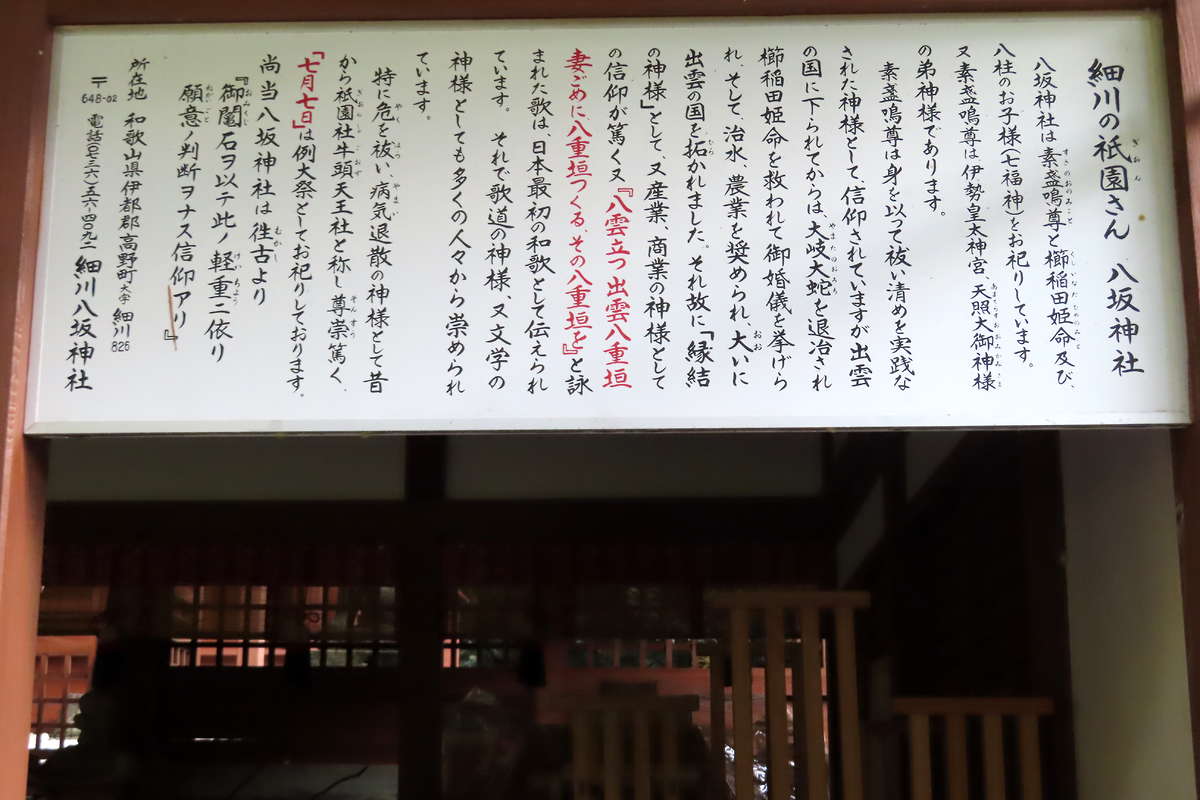 細川の祇園さん 八坂神社
八坂神社は素盞嗚尊と櫛稲田姫命及び、
八柱のお子様(七福神)をお祀りしています。
又素盞嗚尊は伊勢皇太神宮、天照大御神様
の弟神様であります。
素盞嗚尊は身を以って祓い清めを実践な
された神様として、信仰されていますが出雲
の国に下られてからは、大岐大蛇を退治され
櫛稲田姫命を救われて御婚儀を挙げら
れ、そして、治水、農業を奨められ、大いに
出雲の国を拓かれました。それ故に「縁結
の神様」として、又産業、商業の神様として
の信仰が篤く又『八雲立つ出雲八重垣
妻ごめに八重垣つくる、その八重垣を』と詠
まれた歌は、日本最初の和歌として伝えられ
ています。 それで歌道の神様、又文学の
神様としても多くの人々から崇められ
ています。
特に危を祓い、病気退散の神様として昔
から祇園社牛頭天王社と称し尊崇篤く、
「七月七日」は例大祭としてお祀りしております。
尚当八坂神社は徃古より
『御鬮石ヲ以テ此ノ軽重ニ依リ
願意ノ判断ヲナス信仰アリ』
所在地 和歌山県伊都郡高野町大字細川826
〒648-02 電話〇七三六-五六-四〇九二 細川八坂神社